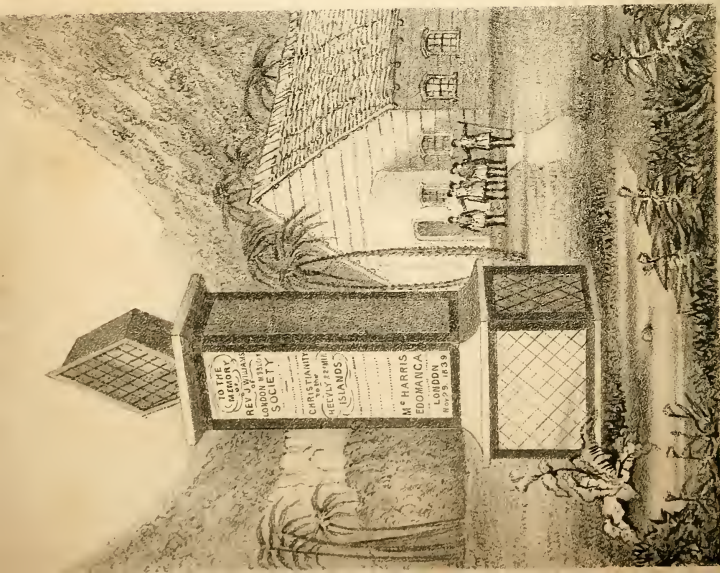 TO THE
MEMORY
OF
REV J. WILLIAMS
OF
LONDON MISSION
SOCIETY
CHRISTIANITY
to the
ISLANDS
Mc HARRIS
EDOMANGA
LONDON
Nov 29 1839